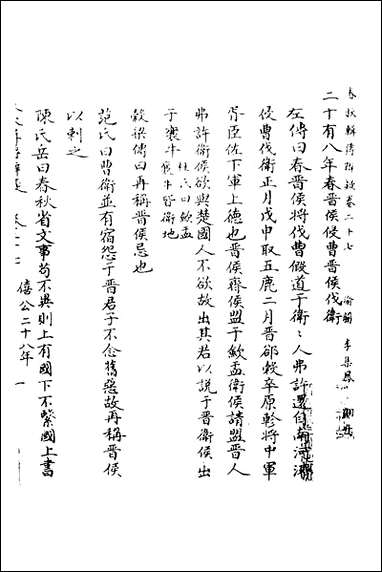 春秋輯傳辨疑卷二十七
李集鳳
二十有八年春晉侯侵曹晉侯伐衛
左傳曰春晉侯將伐曹假道于衛衛人弗許還自南河濟
侵曹伐衛正月戊申取五鹿二月晉郤縠卒原軫將中軍
胥臣佐下軍上德也晉侯齊侯盟于歛盂衛侯請盟晉人
弗許衛侯欲與楚國人不欲故出其君以說于晉衛侯出
于襄牛 杜氏曰歛盂襄牛皆衛地
穀梁傳曰再稱晉侯忌也
范氏曰曹衛並有宿怨于晉君子不念舊惡故再稱晉侯
以刺之
陳氏岳曰春秋省文事茍不異則上有國下不繫國上書
僖公二十八年 一